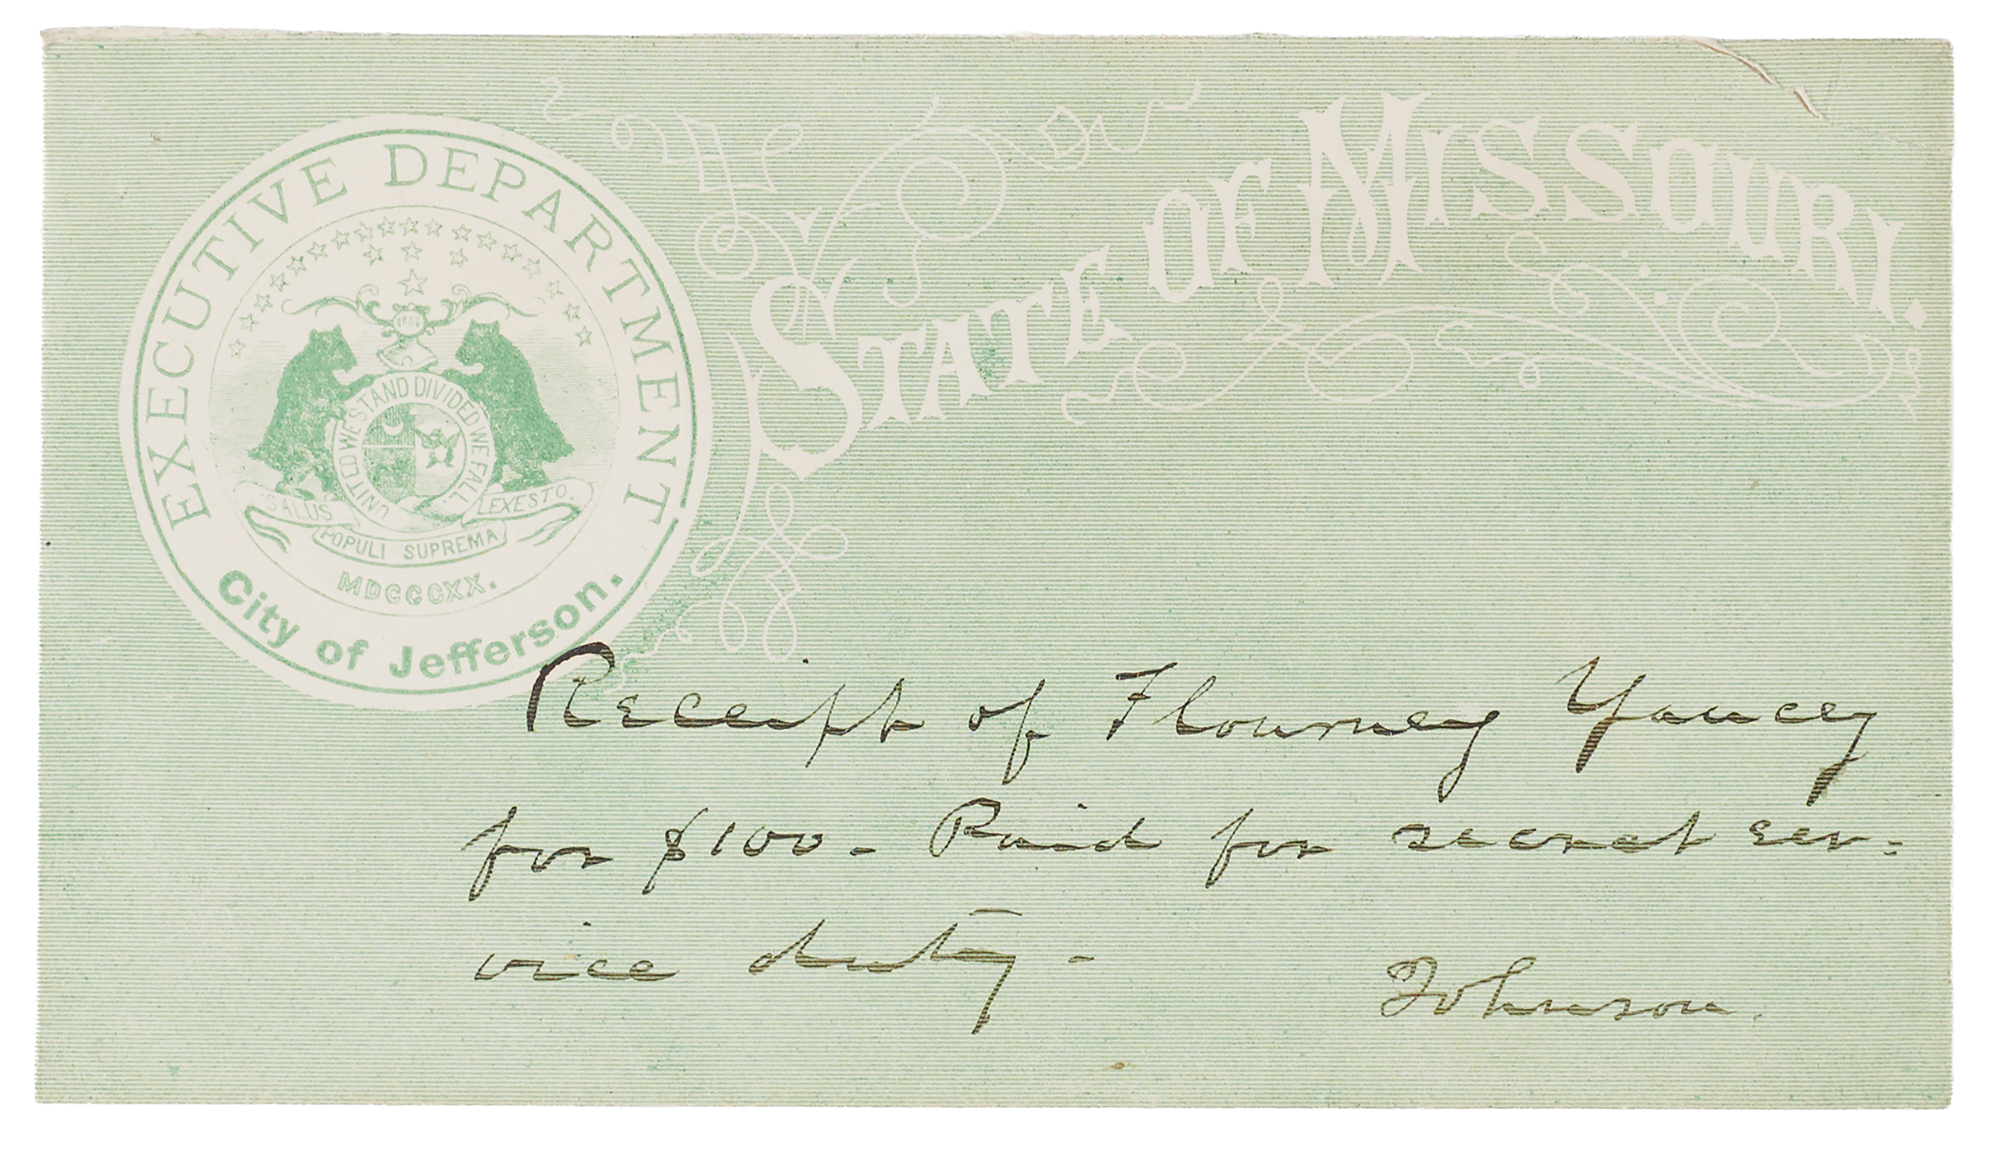 EXECUTIVE DEPARTMENT
UNITED WE STAND DIVIDED WE FALL
SALUS POPULI SUPREMA LEX ESTO
MDCCCXX.
City of Jefferson.
The
STATE OF MISSOURI.
Receipt of Flourney Yancey
for $100 - Paid for secret ser-
vice duty -
Johnson.